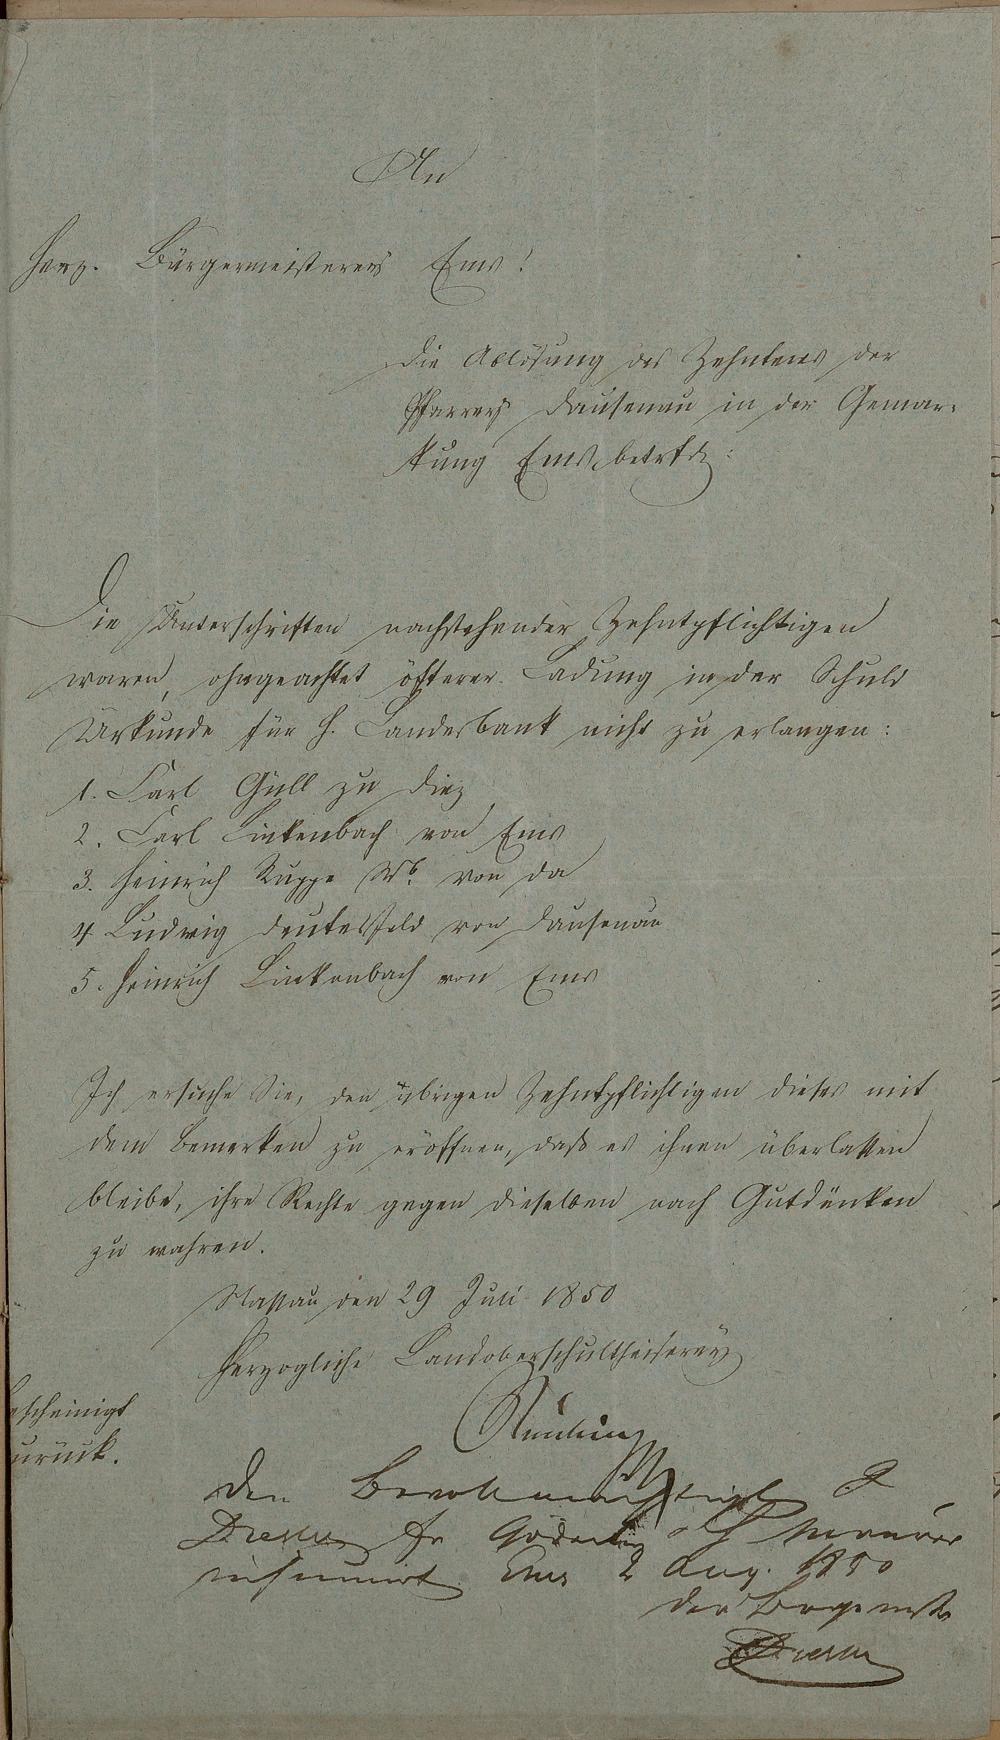 An
Herz. Bürgermeisterey Ems!
Die Ablösung des Zehntens der
Pfarrey Dausenau in der Gemar-
kung Ems betrfd:
Die Unterschriften nachstehender Zehntpflichtigen
waren, ohngeachtet öfterer Ladung in der Schuld
Urkunde für H. Landesbank nicht zu erlangen:
1. Carl Güll zu Diez
2. Carl Linkenbach von Ems
3. Heinrich Ruppe Wb. von da
4 Ludwig Deutesfeld von Dausenau
5. Heinrich Linkenbach von Ems
Ich ersuche Sie, den übrigen Zehntpflichtigen dieses mit
dem Bemerken zu eröffnen, daß es ihnen überlassen
bleibe, ihre Rechte gegen dieselben nach Gutdünken
zu wahren.
Nassau den 29 Juli 1850
Herzogliche Landoberschultheiserey
escheinigt
urück.
Den
insinuirt Ems 2 Aug. 1850
der